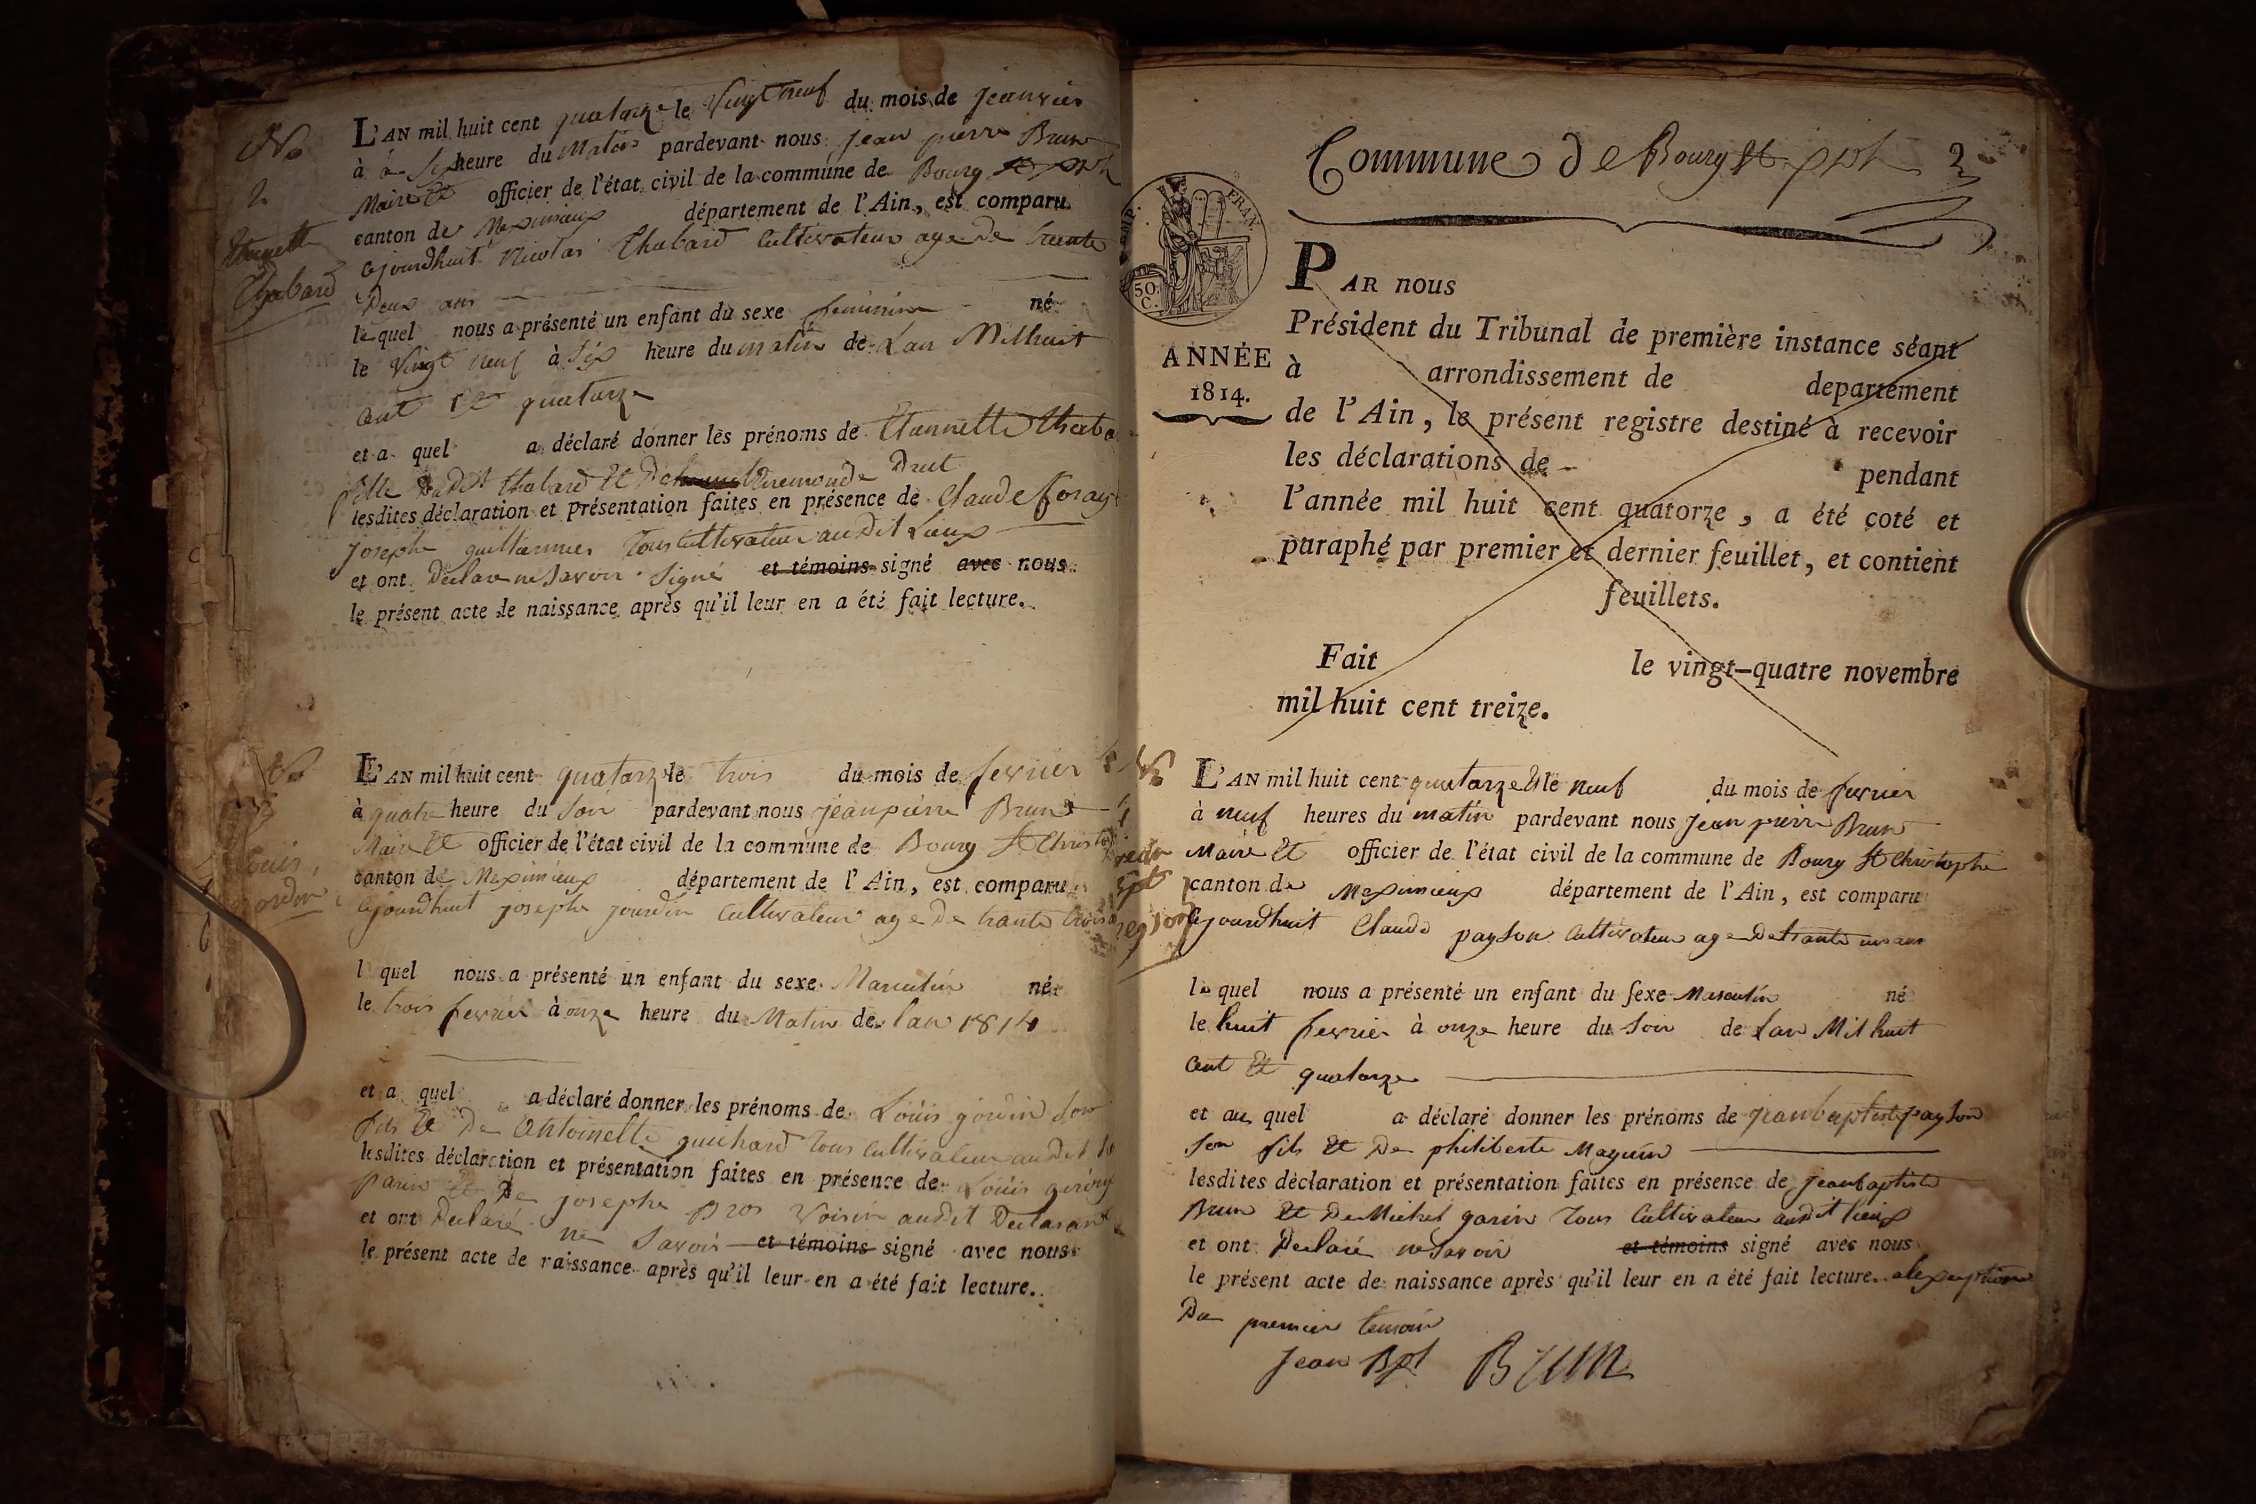 No
2
Etiennette
Thabard
L'AN mil huit cent quatorze le Vingt neuf du mois de jeanvier
à à Six heure du Matin pardevant nous jean pierre Brun
Maire Et officier de l'état civil de la commune de Bourg St xpt
canton de Meximieux département de l'Ain, est comparu
ajourdhuit Nicolas Thabard Cultivateur age de trente
Deux ans
le quel nous a présenté un enfant du sexe feminin né
le Vingt neuf à Six heure du matin de Lan Milhuit
cent Et quatorze
et a quel a déclaré donner les prénoms de
fille dudit thabard Et De Dremonde Drut
lesdites déclaration et présentation faites en présence de Claude foray
josephe guillaumier Tous Cultivateur audit Lieux
et ont Declare ne Savoir Signé et témoins signé avec nous
le présent acte de naissance après qu'il leur en a été fait lecture.
No
3
Louis
jordin
L'AN mil huit cent quatorze le trois du mois de fevrier
à quatre heure du Soir pardevant nous jeanpierre Brun
Maire Et officier de l'état civil de la commune de Bourg St Christo
canton de Meximieux département de l'Ain, est comparu
ajourdhuit josephe jourdin Cultivateur age de trante trois
l quel nous a présenté un enfant du sexe Masculin né
le trois fevrier à onze heure du Matin de lan 1814
et a quel a déclaré donner les prénoms de Loüis jordin Son
fils Et De Antoinette guichard tous Cultivateur audit
lesdites déclaration et présentation faites en présence de Loüis
parin Et De josephe Bros Voisin audit Declarant
et ont Declaré ne Savoir et témoins signé avec nous
le présent acte de naissance après qu'il leur en a été fait lecture.
Commune de Bourg St xpt 2
FRAN.
50
C.
ANNÉE
1814.
PAR nous
Président du Tribunal de première instance séant
à arrondissement de département
de l'Ain, le présent registre destiné à recevoir
les déclarations de pendant
l'année mil huit cent quatorze, a été coté et
paraphé par premier et dernier feuillet, et contient
feuillets.
Fait le vingt-quatre novembre
mil huit cent treize.
No
4
L'AN mil huit cent quatorze Et le neuf du mois de fevrier
à neuf heures du matin pardevant nous jean pierre Brun
Maire Et officier de l'état civil de la commune de Bourg St Christophe
canton de Meximieux département de l'Ain, est comparu
ajourdhuit Claude payson Cultivateur age de trante un ans
le quel nous a présenté un enfant du sexe Masculin né
le huit fevrier à onze heure du Soir de Lan Mil huit
cent Et quatorze
et au quel a déclaré donner les prénoms de jeanbaptiste payson
Son fils Et De philiberte Maguin
lesdites déclaration et présentation faites en présence de jeanbaptiste
Brun Et De Michel garin Tous Cultivateur audit lieux
et ont Declaré ne Savoir et témoins signé avec nous
le présent acte de naissance après qu'il leur en a été fait lecture. alexception
Du premier temoin
jean Bpt Brun